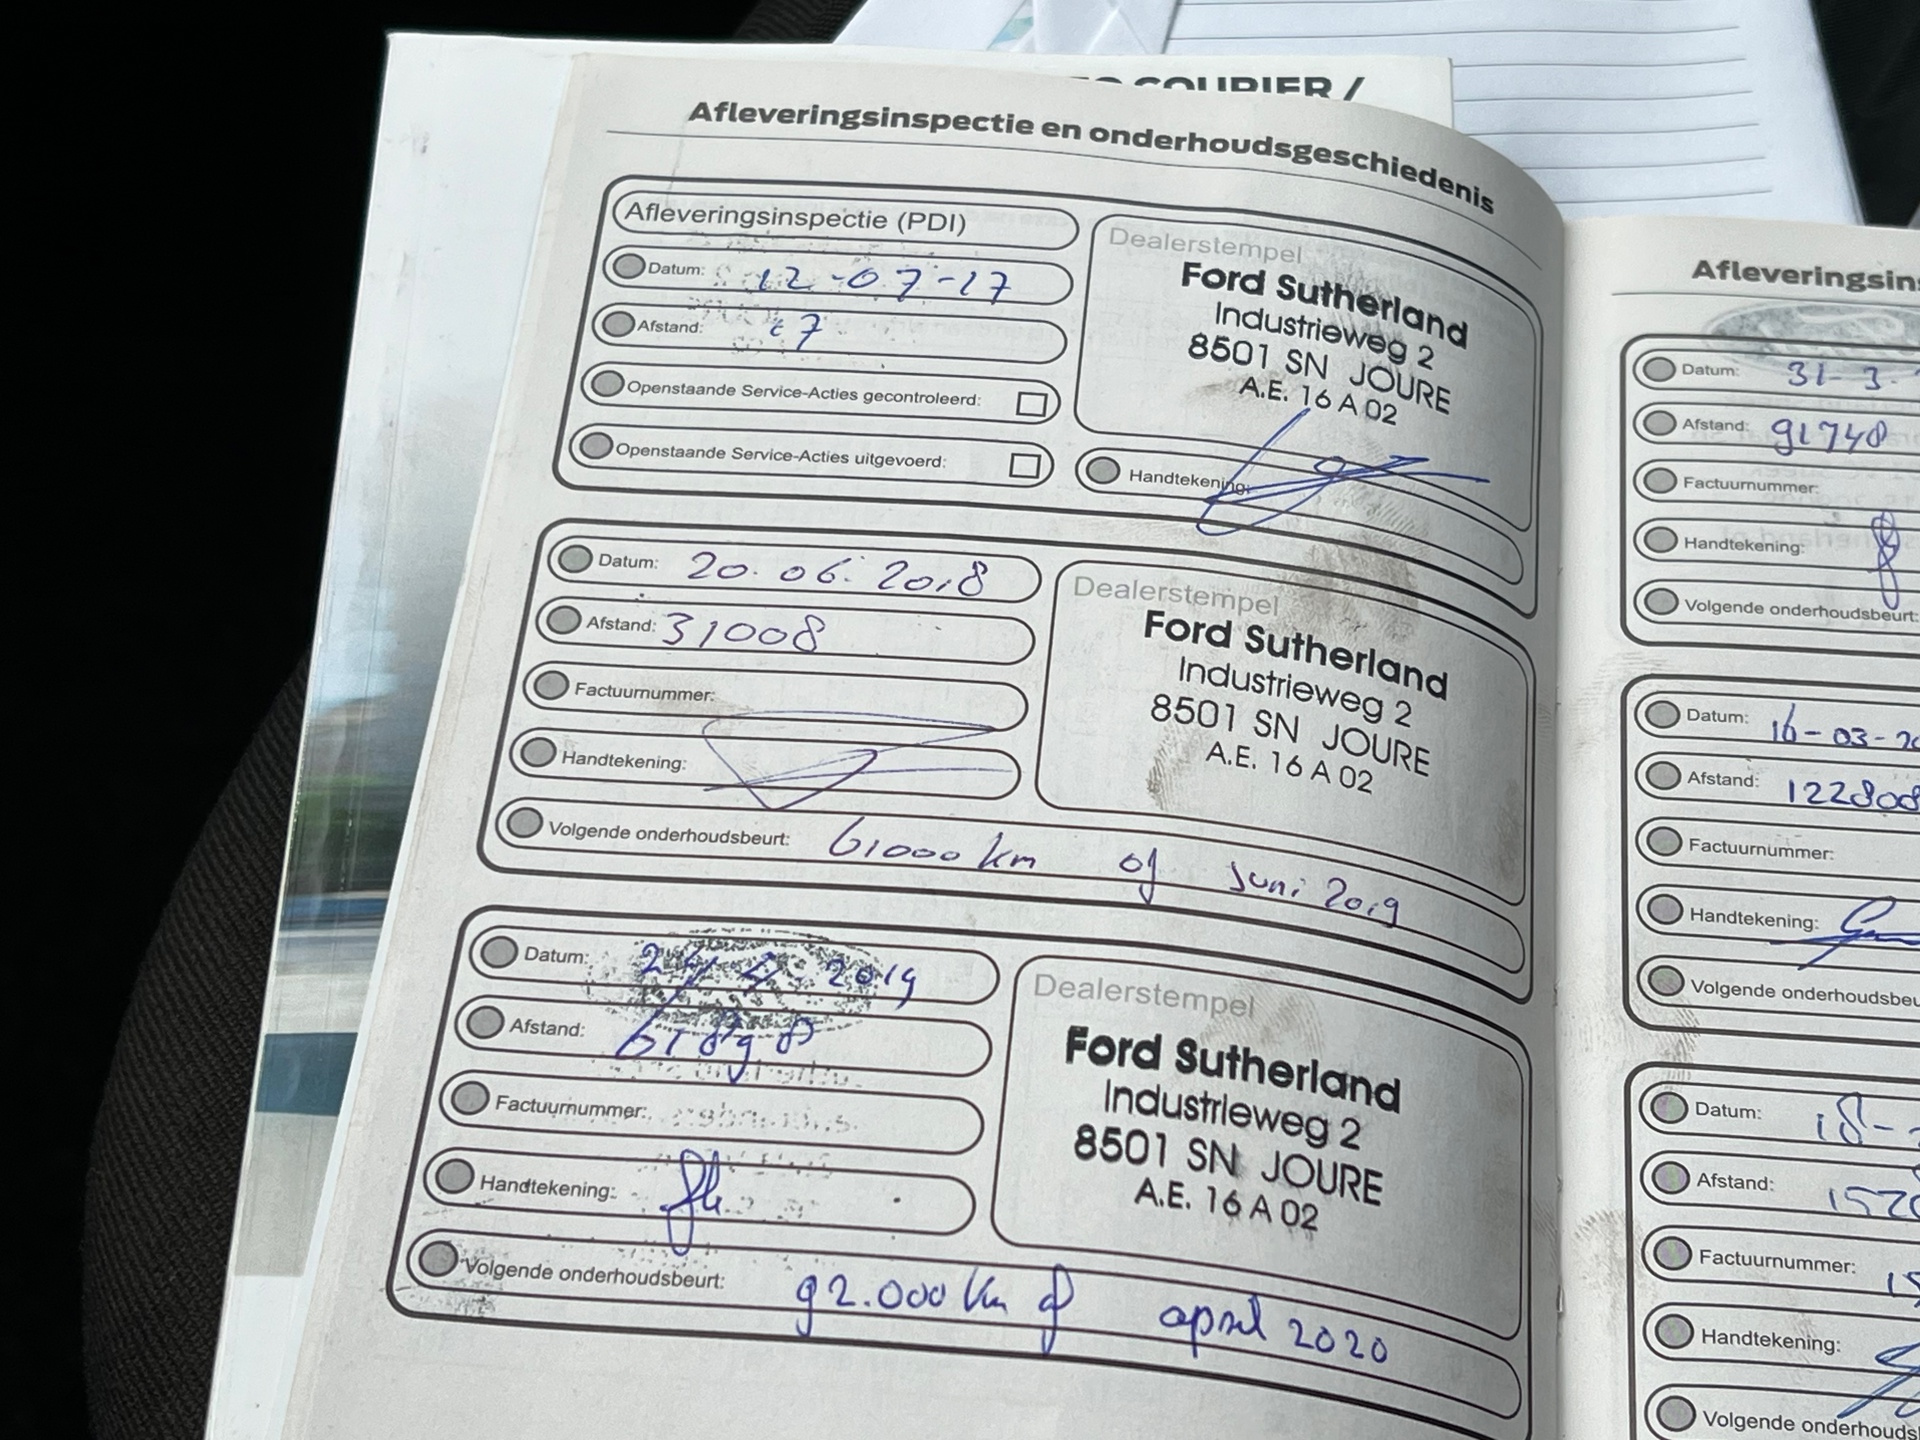 COURIER /
Afleveringsinspectie en onderhoudsgeschiedenis
Afleveringsinspectie (PDI)
Datum: 12-07-17
Afstand: 7
Openstaande Service-Acties gecontroleerd:
Openstaande Service-Acties uitgevoerd:
Dealerstempel
Ford Sutherland
Industrieweg 2
8501 SN JOURE
A.E. 16 A 02
Handtekening:
Datum: 20.06.2018
Afstand: 31008
Factuurnummer:
Handtekening:
Dealerstempel
Ford Sutherland
Industrieweg 2
8501 SN JOURE
A.E. 16 A 02
Volgende onderhoudsbeurt: 61000 km of Juni 2019
Datum: 24-4-2019
Afstand: 61898
Factuurnummer:
Handtekening:
Dealerstempel
Ford Sutherland
Industrieweg 2
8501 SN JOURE
A.E. 16 A 02
Volgende onderhoudsbeurt: 92.000 km of april 2020
Afleveringsins
Datum: 31-3-
Afstand: 91748
Factuurnummer:
Handtekening:
Volgende onderhoudsbeurt:
Datum: 16-03-20
Afstand: 122808
Factuurnummer:
Handtekening:
Volgende onderhoudsbeu
Datum: 18-
Afstand: 1520
Factuurnummer: 15
Handtekening:
Volgende onderhouds